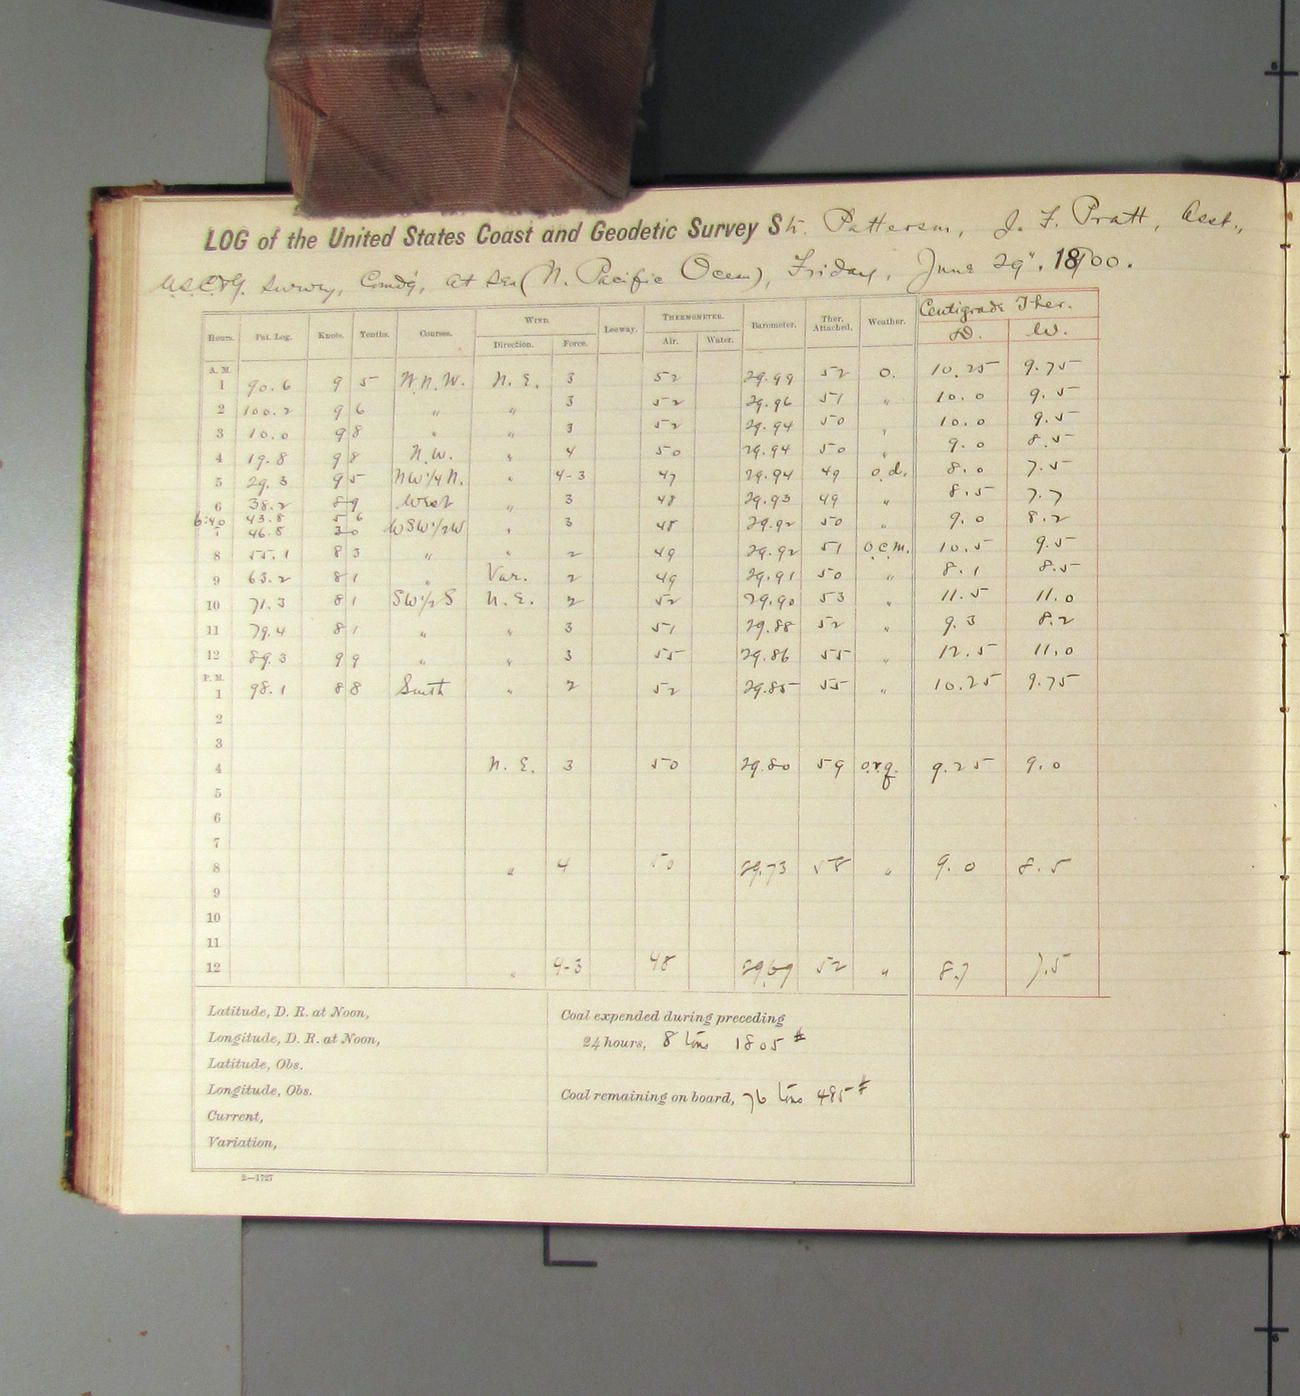 LOG of the United States Coast and Geodetic Survey Str. Patterson, J. F. Pratt, Asst.,
U.S.C.&G. Survey, Comd'g, at Sea (N. Pacific Ocean), Friday, June 29", 1900.
Hours. Pat. Log. Knots. Tenths. Courses. Wind. Direction. Force. Leeway. Thermometer. Air. Water. Barometer. Ther. Attached. Weather. Centigrade Ther. D. W.
A. M.
1 90.6 9 5 W.N.W. N.E. 3 52 29.99 52 o. 10.25 9.75
2 100.2 9 6 " " 3 52 29.96 51 " 10.0 9.5
3 10.0 9 8 " " 3 52 29.94 50 " 10.0 9.5
4 19.8 9 8 N.W. " 4 50 29.94 50 " 9.0 8.5
5 29.3 9 5 NW1/4N. " 4-3 47 29.94 49 o.d. 8.0 7.5
6 38.2 8 9 West " 3 48 29.93 49 " 8.5 7.7
6:40 43.8 5 6
7 46.8 3 0 WSW1/2W " 3 48 29.92 50 9.0 8.2
8 55.1 8 3 " " 2 49 29.92 51 o.c.m. 10.5 9.5
9 63.2 8 1 " Var. 2 49 29.91 50 " 8.1 8.5
10 71.3 8 1 SW1/2S N.E. 2 52 29.90 53 " 11.5 11.0
11 79.4 8 1 " " 3 51 29.88 52 " 9.3 8.2
12 89.3 9 9 " " 3 55 29.86 55 " 12.5 11.0
P. M.
1 98.1 8 8 South " 2 52 29.85 55 " 10.25 9.75
2
3
4 N.E. 3 50 29.80 59 o.r.q. 9.25 9.0
5
6
7
8 " 4 50 29.73 58 " 9.0 8.5
9
10
11
12 " 4-3 48 29.69 52 " 8.7 7.5
Latitude, D. R. at Noon,
Longitude, D. R. at Noon,
Latitude, Obs.
Longitude, Obs.
Current,
Variation,
Coal expended during preceding
24 hours, 8 tons 1805 #
Coal remaining on board, 76 tons 495 #
2—1727